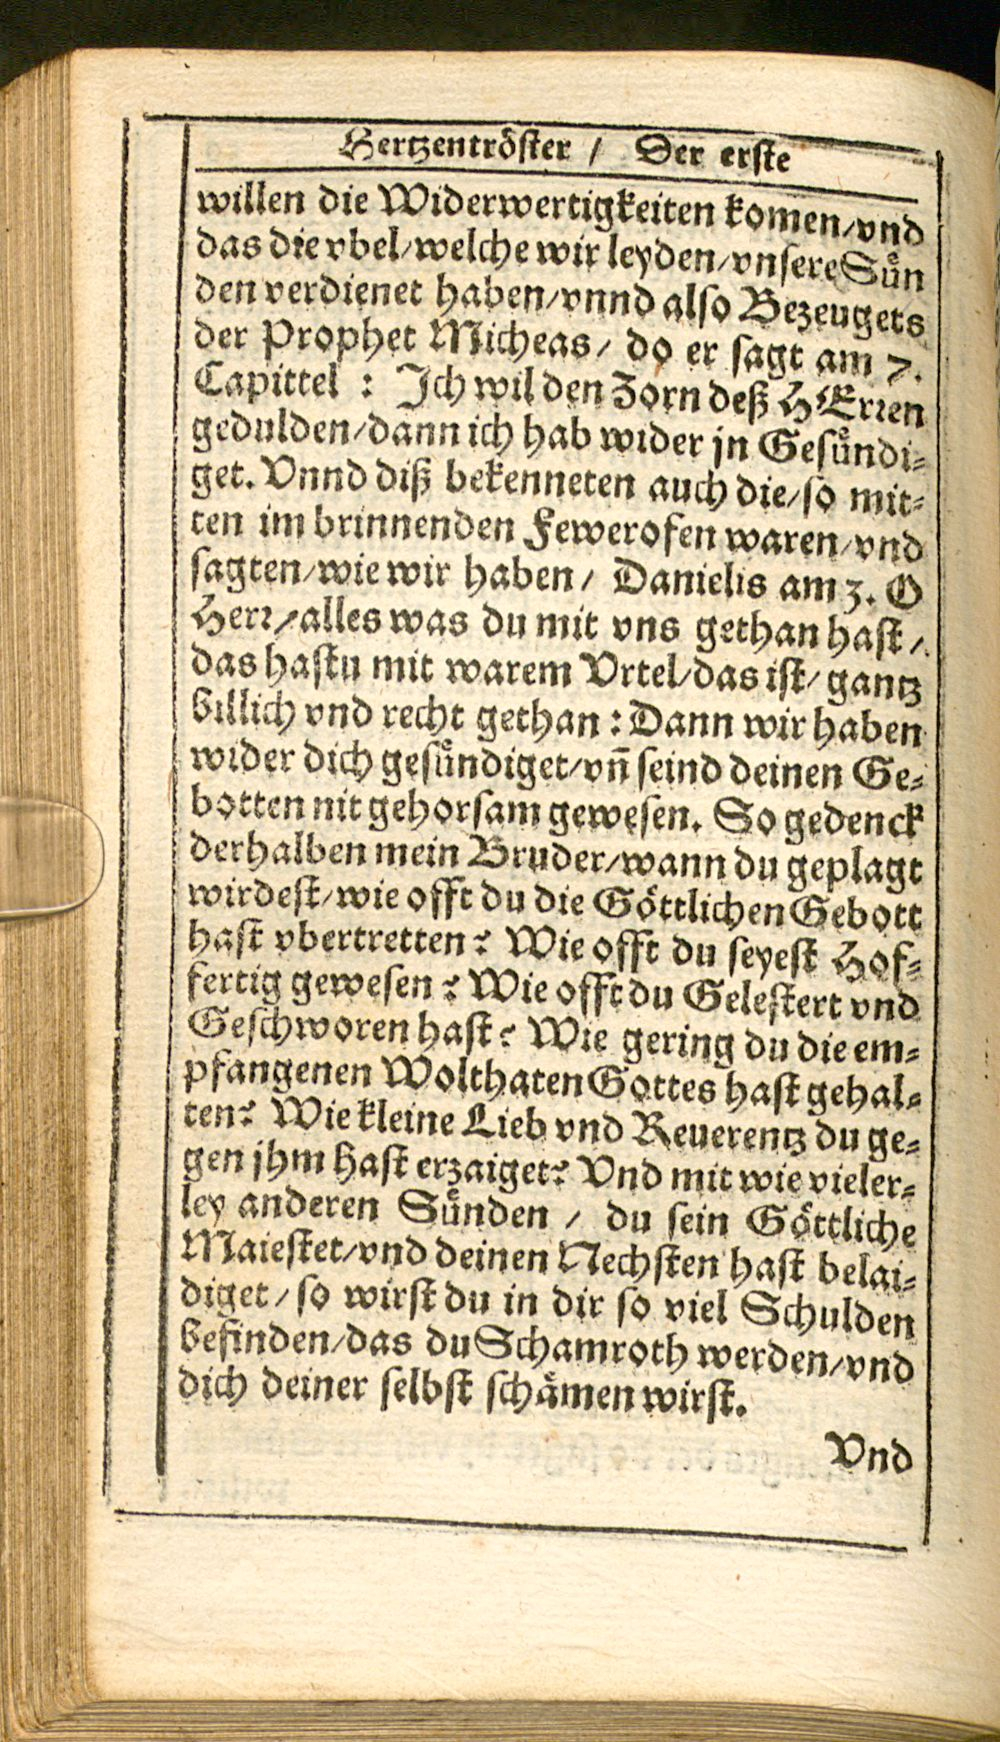 Hertzentröster / Der erste
willen die Widerwertigkeiten komen/vnd
das die vbel/welche wir leyden/vnsere Sůn
den verdienet haben/vnnd also Bezeugets
der Prophet Micheas/ do er sagt am 7.
Capittel : Ich wil den Zorn deß HErren
gedulden/dann ich hab wider jn Gesůndi⸗
get. Vnnd diß bekenneten auch die/so mit⸗
ten im brinnenden Fewerofen waren/vnd
sagten/wie wir haben/ Danielis am 3. O
Herr/alles was du mit vns gethan hast/
das hastu mit warem Vrtel/das ist/gantz
billich vnd recht gethan : Dann wir haben
wider dich gesůndiget/vñ seind deinen Ge⸗
botten nit gehorsam gewesen. So gedenck
derhalben mein Bruder/wann du geplagt
wirdest/wie offt du die Göttlichen Gebott
hast vbertretten? Wie offt du seyest Hof⸗
fertig gewesen? Wie offt du Gelestert vnd
Geschworen hast? Wie gering du die em⸗
pfangenen Wolthaten Gottes hast gehal⸗
ten? Wie kleine Lieb vnd Reuerentz du ge⸗
gen jhm hast erzaiget? Vnd mit wie vieler⸗
ley anderen Sůnden / du sein Göttliche
Maiestet/vnd deinen Nechsten hast belai⸗
diget/so wirst du in dir so viel Schulden
befinden/das du Schamroth werden/vnd
dich deiner selbst schämen wirst.
Vnd